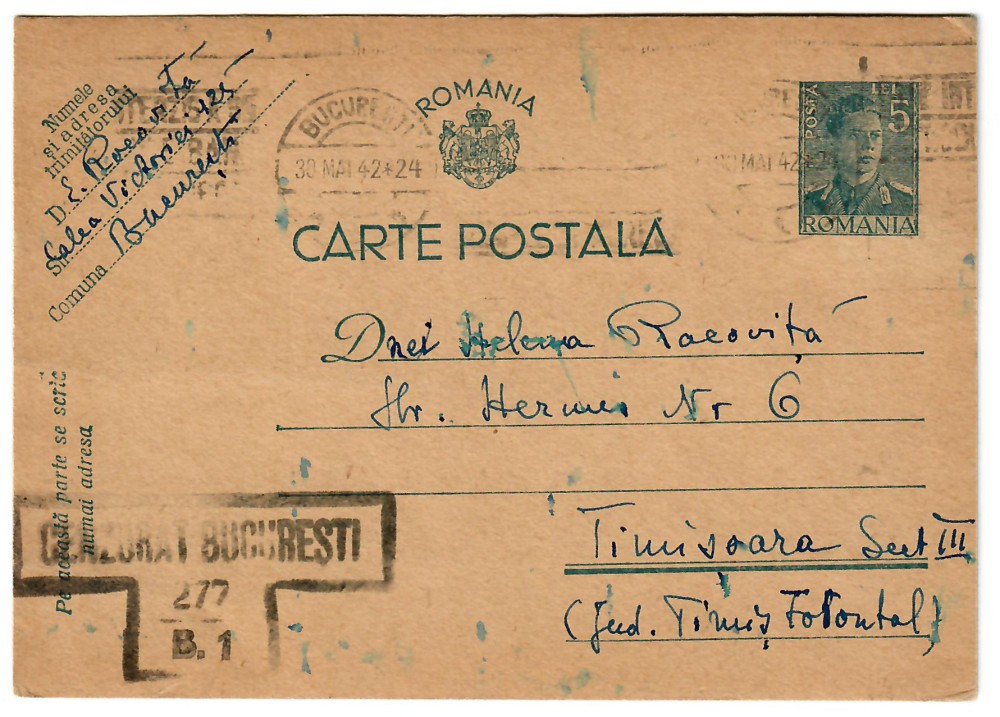 Numele
și adresa
trimițătorului
D. E. Racoviță
Calea Victoriei 125
Str.
Comuna București
BUCUREȘTI
30 MAI 42*24
ROMANIA
POSTA LEI 5
MAI 42*24
ROMANIA
CARTE POSTALĂ
Dnei Helena Racoviță
Str. Hermes Nr 6
Timisoara Sect III
(Jud. Timiș Torontal)
Pe această parte se scrie
numai adresa
CENZURAT BUCUREȘTI
277
B. 1